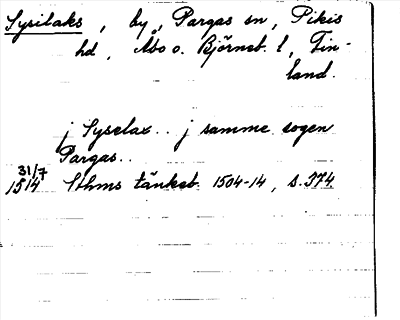 Sysilaks, by, Pargas sn, Pikis
hd, Åbo o. Björneb. l, Fin-
land.
j Syselax.. j samme sogen
Pargas..
31/7
1514 Sthms tänkeb. 1504-14, s. 374